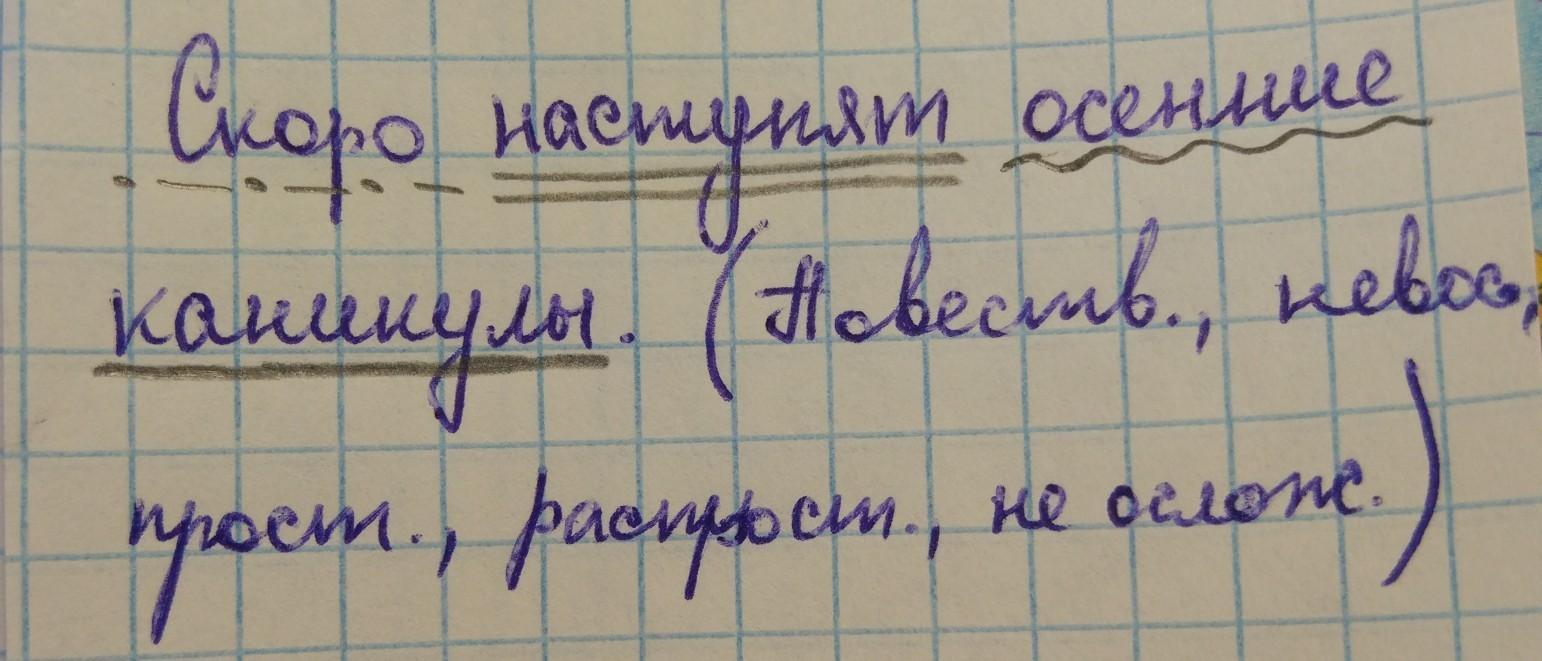 Скоро наступят осенние
каникулы. (Повеств., невос,
прост., распрост., не ослож.)